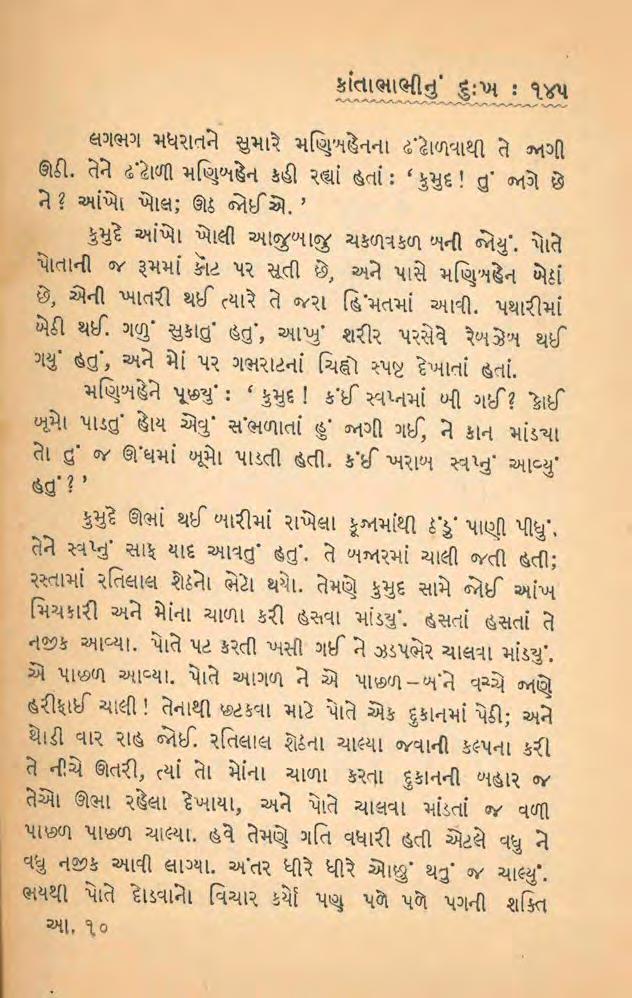 કાંતાભાભીનું દુઃખ : ૧૪૫
લગભગ મધરાતને સુમારે મણિબહેનના ઢંઢોળવાથી તે જાગી
ઊઠી. તેને ઢંઢોળી મણિબહેન કહી રહ્યાં હતાં : ‘કુમુદ! તું જાગે છે
ને? આંખો ખોલ; ઊઠ જોઈએ.’
કુમુદે આંખો ખોલી આજુબાજુ ચકળવકળ બની જોયું. પોતે
પોતાની જ રૂમમાં કૉટ પર સૂતી છે, અને પાસે મણિબહેન બેઠાં
છે, એની ખાતરી થઈ ત્યારે તે જરા હિંમતમાં આવી. પથારીમાં
બેઠી થઈ. ગળું સુકાતું હતું, આખું શરીર પરસેવે રેબઝેબ થઈ
ગયું હતું, અને મોં પર ગભરાટનાં ચિહ્નો સ્પષ્ટ દેખાતાં હતાં.
મણિબહેને પૂછ્યું : ‘કુમુદ! કંઈ સ્વપ્નમાં બી ગઈ? કોઈ
બૂમો પાડતું હોય એવું સંભળાતાં હું જાગી ગઈ, ને કાન માંડ્યા
તો તું જ ઊંઘમાં બૂમો પાડતી હતી. કંઈ ખરાબ સ્વપ્નું આવ્યું
હતું?’
કુમુદે ઊભાં થઈ બારીમાં રાખેલા કૂજામાંથી ઠંડું પાણી પીધું.
તેને સ્વપ્નું સાફ યાદ આવતું હતું. તે બજારમાં ચાલી જતી હતી;
રસ્તામાં રતિલાલ શેઠનો ભેટો થયો. તેમણે કુમુદ સામે જોઈ આંખ
મિચકારી અને મોંના ચાળા કરી હસવા માંડયું. હસતાં હસતાં તે
નજીક આવ્યા. પોતે પટ કરતી ખસી ગઈ ને ઝડપભેર ચાલવા માંડયું.
એ પાછળ આવ્યા. પોતે આગળ ને એ પાછળ–બંને વચ્ચે જાણે
હરીફાઈ ચાલી! તેનાથી છટકવા માટે પોતે એક દુકાનમાં પેઠી; અને
થોડી વાર રાહ જોઈ. રતિલાલ શેઠના ચાલ્યા જવાની કલ્પના કરી
તે નીચે ઊતરી, ત્યાં તો મોંના ચાળા કરતા દુકાનની બહાર જ
તેઓ ઊભા રહેલા દેખાયા, અને પોતે ચાલવા માંડતાં જ વળી
પાછળ પાછળ ચાલ્યા. હવે તેમણે ગતિ વધારી હતી એટલે વધુ ને
વધુ નજીક આવી લાગ્યા. અંતર ધીરે ધીરે ઓછું થતું જ ચાલ્યું.
ભયથી પોતે દોડવાનો વિચાર કર્યો પણ પળે પળે પગની શક્તિ
આ. ૧૦